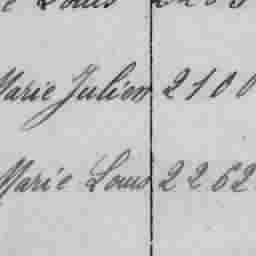 Marie Julien 2100
Marie Louis 2262